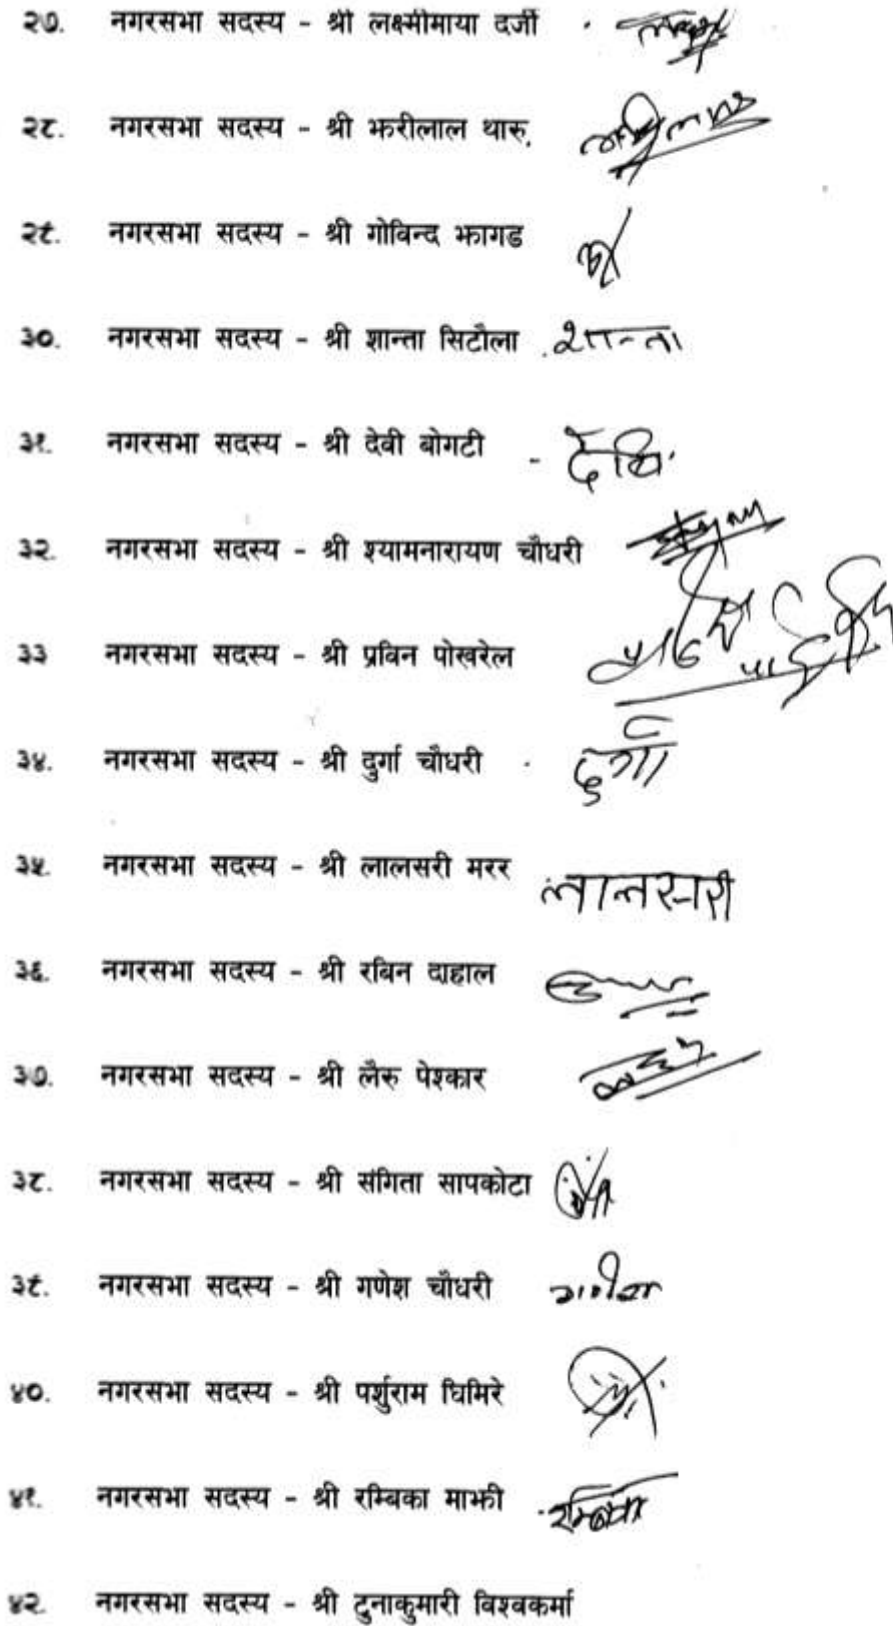 २७. नगरसभा सदस्य - श्री लक्ष्मीमाया दर्जी
२८. नगरसभा सदस्य - श्री झरीलाल थारु.
२९. नगरसभा सदस्य - श्री गोविन्द झागड
३०. नगरसभा सदस्य - श्री शान्ता सिटौला शान्ता
३१. नगरसभा सदस्य - श्री देवी बोगटी - देवि
३२. नगरसभा सदस्य - श्री श्यामनारायण चौधरी
३३ नगरसभा सदस्य - श्री प्रविन पोखरेल
३४. नगरसभा सदस्य - श्री दुर्गा चौधरी दुर्गा
३५. नगरसभा सदस्य - श्री लालसरी मरर लालसरी
३६. नगरसभा सदस्य - श्री रबिन दाहाल
३७. नगरसभा सदस्य - श्री लैरु पेश्कार
३८. नगरसभा सदस्य - श्री संगिता सापकोटा
३९. नगरसभा सदस्य - श्री गणेश चौधरी गणेश
४०. नगरसभा सदस्य - श्री पर्शुराम घिमिरे
४१. नगरसभा सदस्य - श्री रम्बिका माझी रम्बिका
४२. नगरसभा सदस्य - श्री टुनाकुमारी विश्वकर्मा